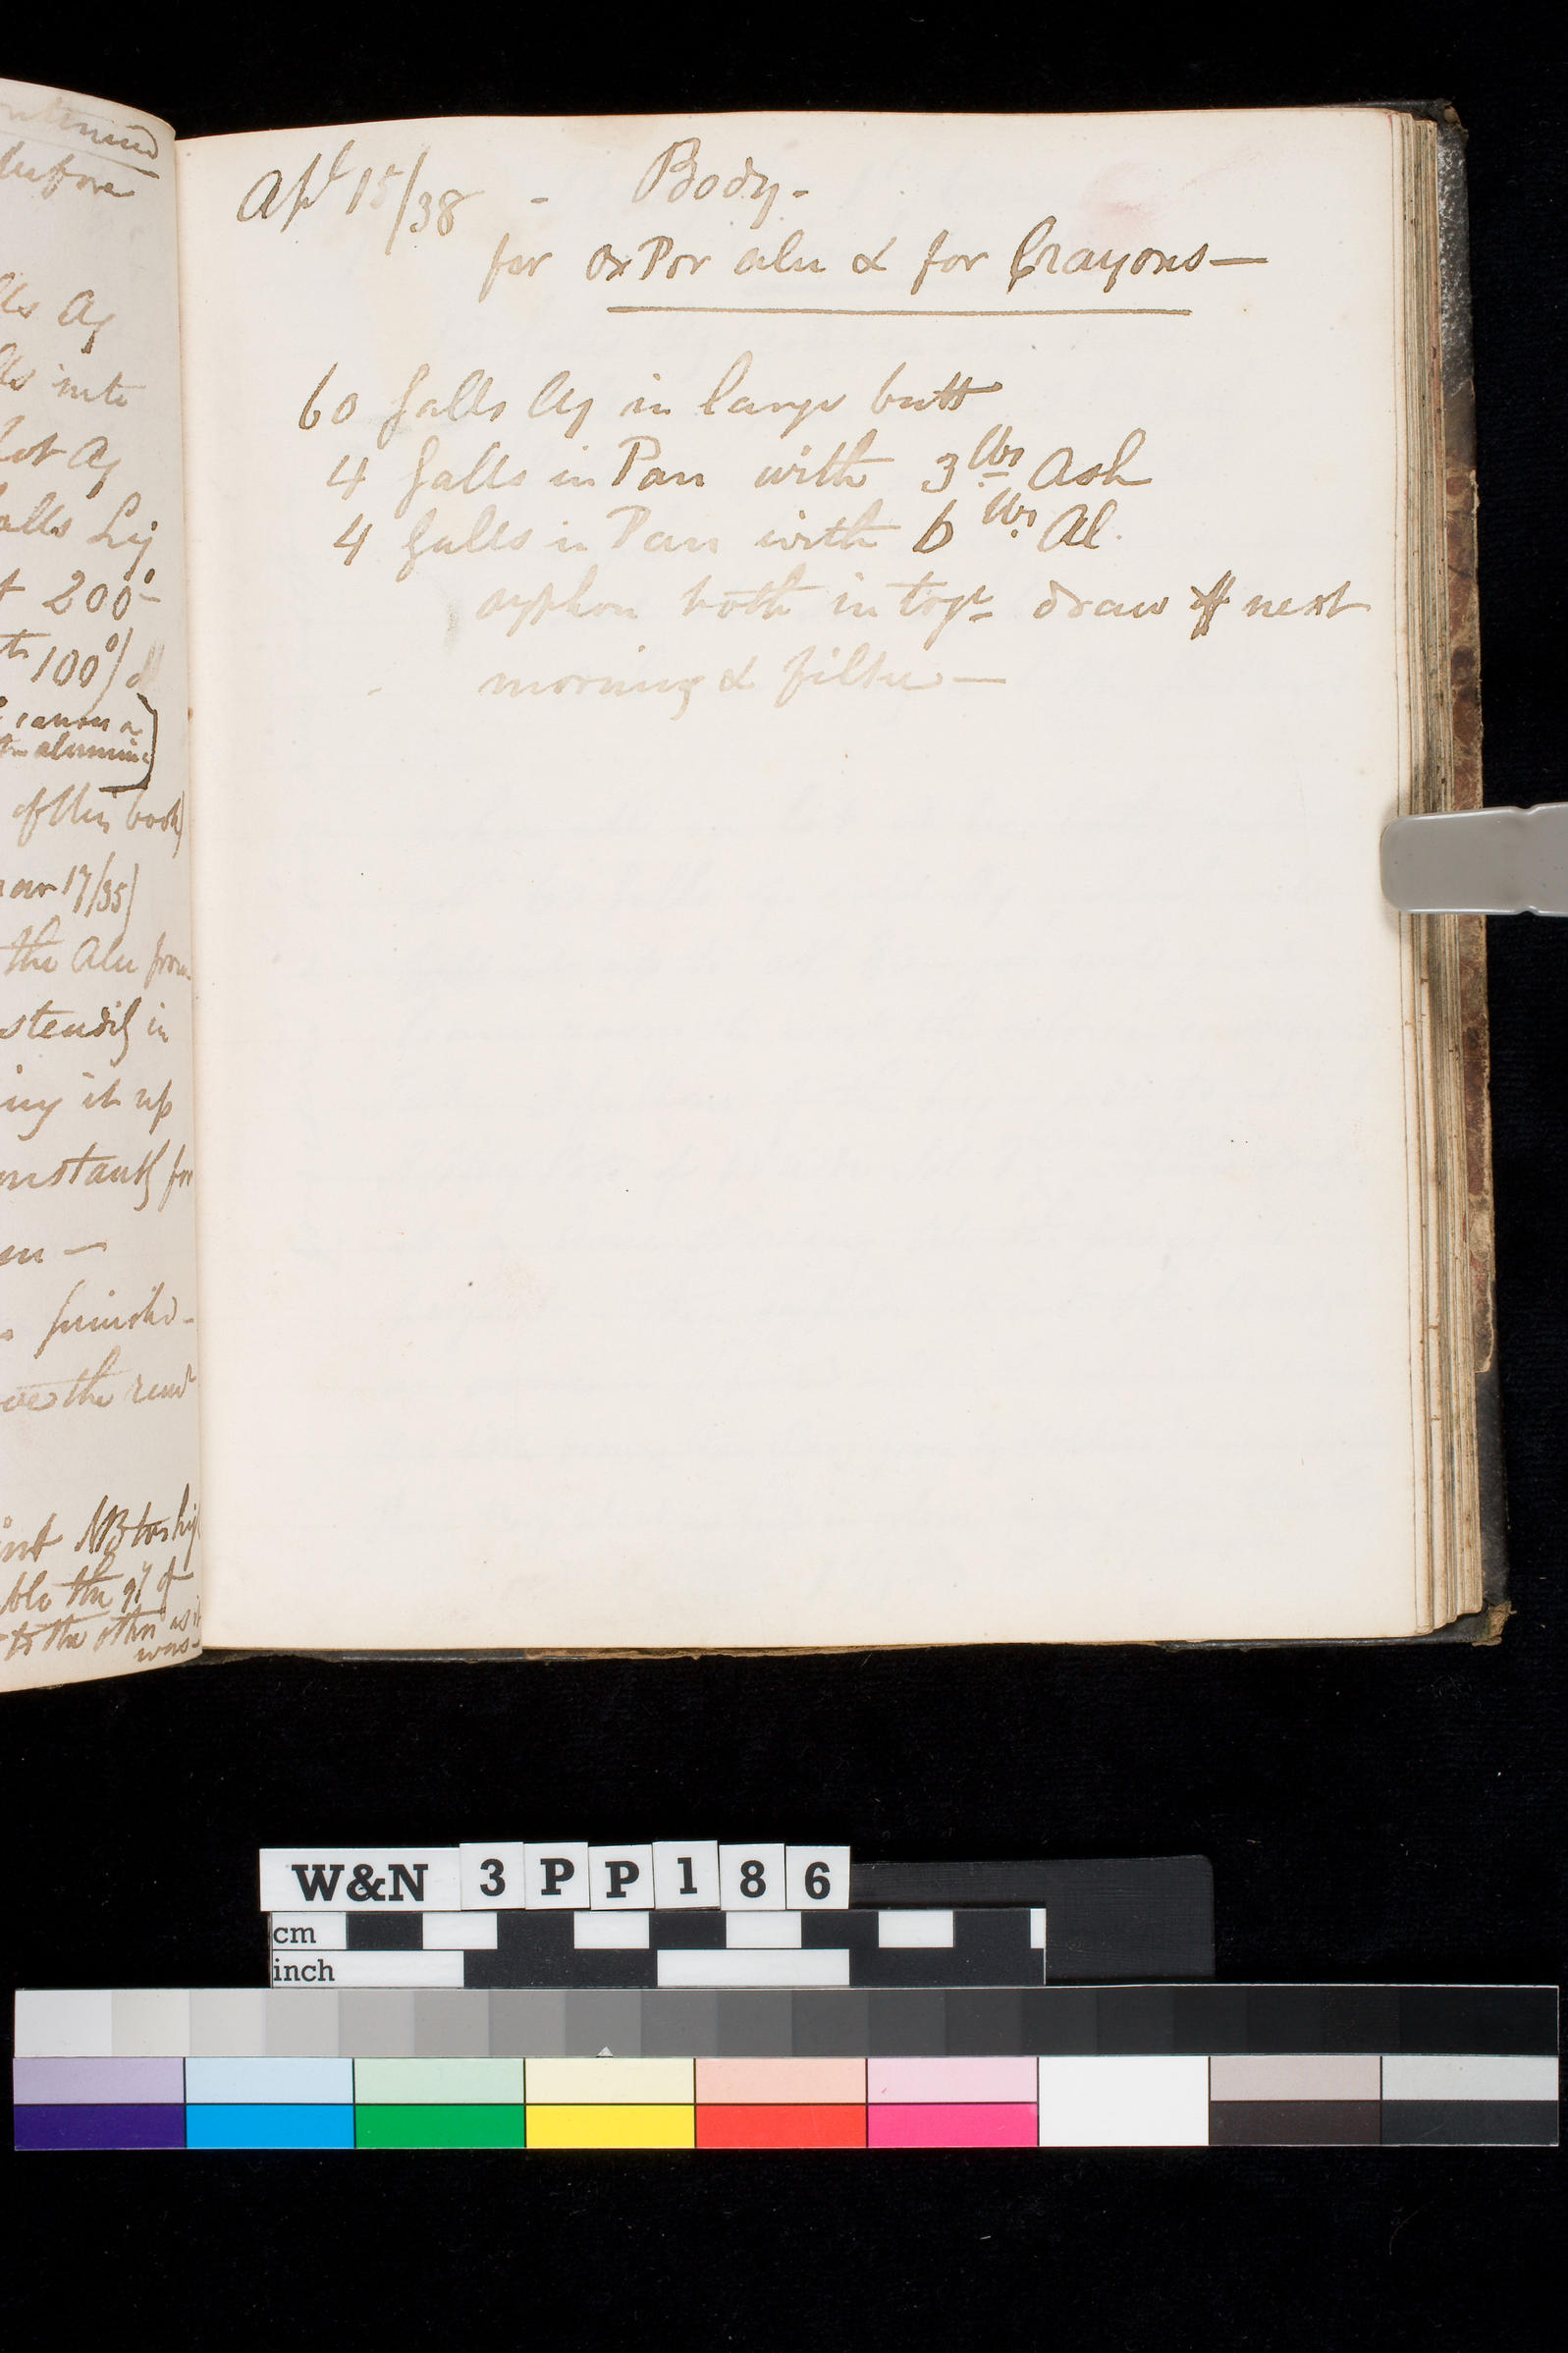 ontinued
before
lls Aq
lls into
hot Aq
alls Liq
t 200°
to 100°)
canon a
alumin
of this book)
17/35)
the Alu from
in
ing it up
onstantly for
finish
over the
int NB
ble the qy of
to the other as it
was
Apl 15/38 - Body -
for ox Por alu & for Crayons —
60 Galls Aq in large butt
4 Galls in Pan with 3 lbs Ash
4 Galls in Pan with 6 lbs Al.
syphon both in togr draw off next
morning & filter —
W&N 3PP186
cm
inch